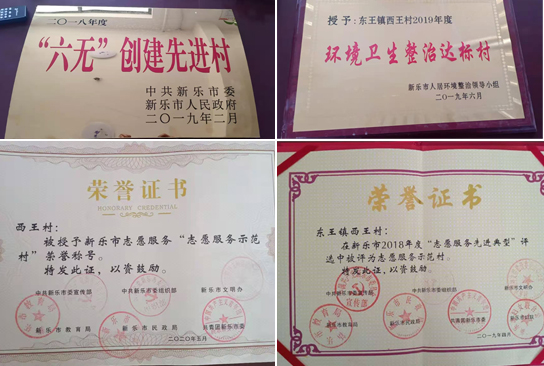 二〇一八年度
“六无”创建先进村
中共新乐市委
新乐市人民政府
二〇一九年二月
授予：东王镇西王村2019年度
环境卫生整治达标村
新乐市人居环境整治领导小组
二〇一九年六月
荣誉证书
HONORARY CREDENTIAL
西王村：
被授予新乐市志愿服务“志愿服务示范
村”荣誉称号。
特发此证，以资鼓励。
中共新乐市委宣传部 中共新乐市委组织部 新乐市文明办
新乐市教育局 新乐市民政局 共青团新乐市委
二〇二〇年五月
荣誉证书
东王镇西王村：
在新乐市2018年度“志愿服务先进典型”评
选中被评为志愿服务示范村。
特发此证，以资鼓励。
中共新乐市委宣传部 中共新乐市委组织部 新乐市文明办
新乐市教育局 新乐市民政局 共青团新乐市委
二〇一九年四月